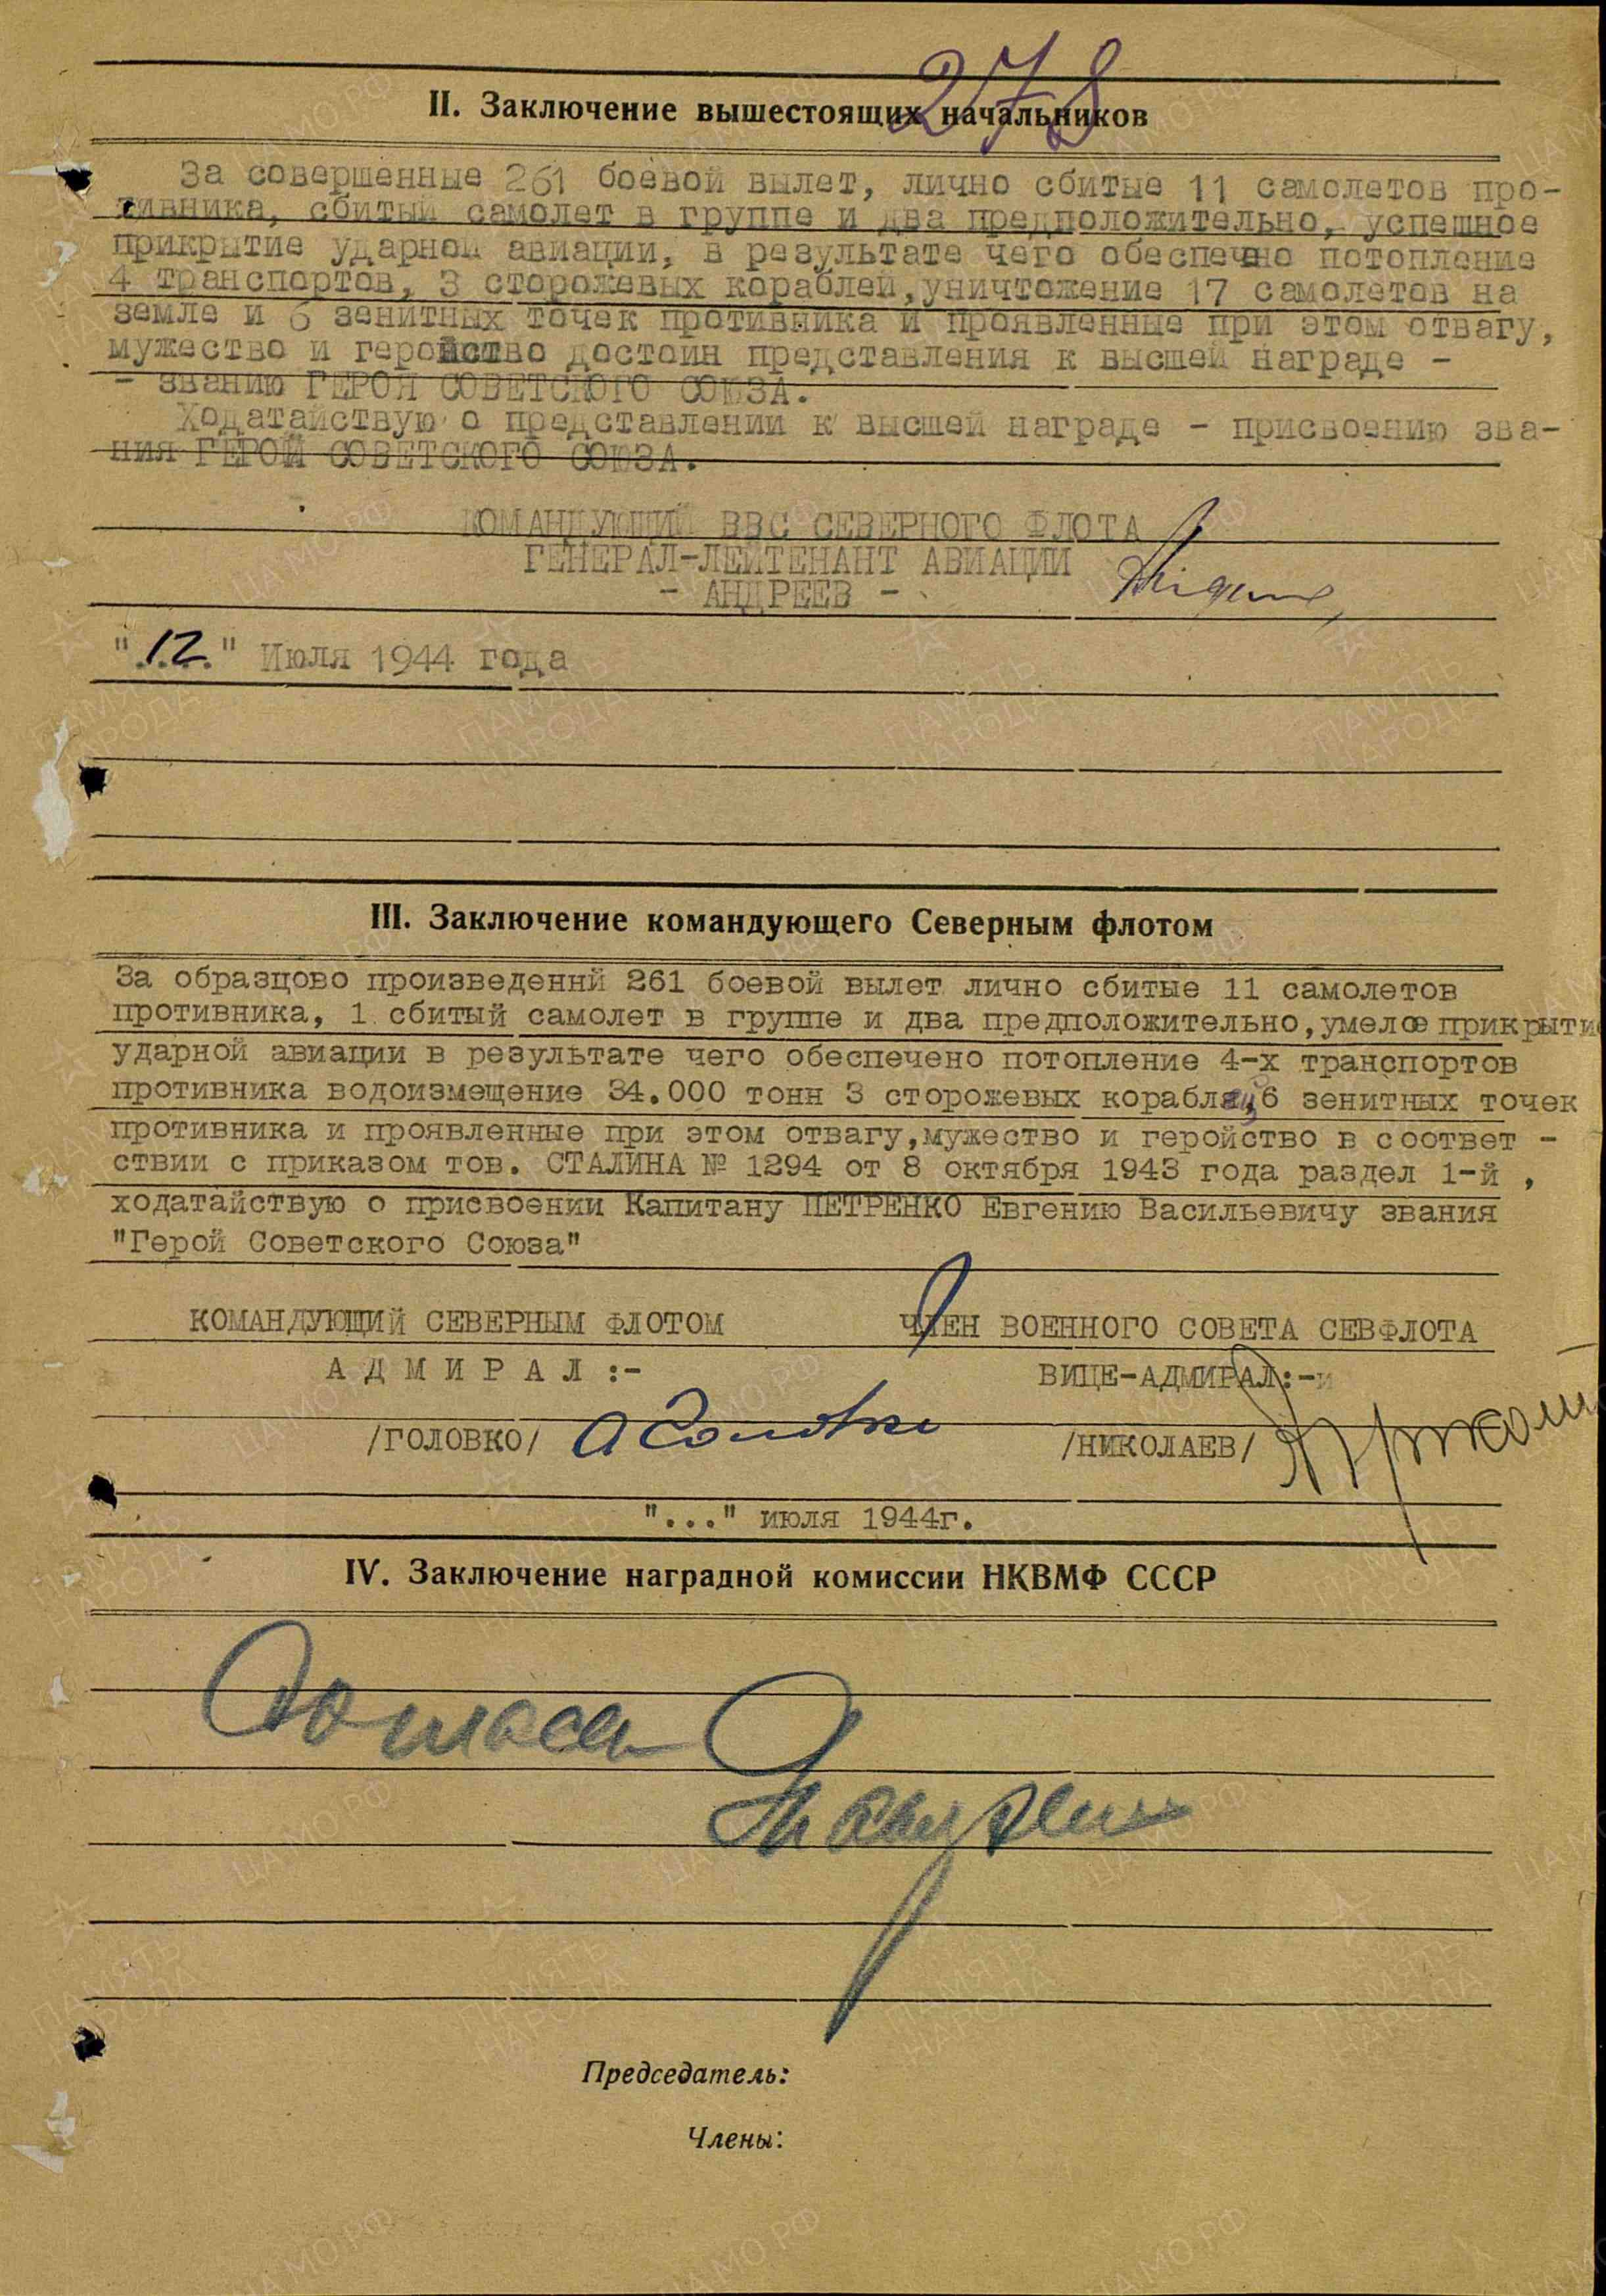 278
II. Заключение вышестоящих начальников
За совершенные 261 боевой вылет, лично сбитые 11 самолетов про-
тивника, сбитый самолет в группе и два предположительно, успешное
прикрытие ударной авиации, в результате чего обеспечено потопление
4 транспортов, 3 сторожевых кораблей, уничтожение 17 самолетов на
земле и 6 зенитных точек противника и проявленные при этом отвагу,
мужество и геройство достоин представления к высшей награде -
- званию ГЕРОЯ СОВЕТСКОГО СОЮЗА.
Ходатайствую о представлении к высшей награде - присвоению зва-
ния ГЕРОЙ СОВЕТСКОГО СОЮЗА.
КОМАНДУЮЩИЙ ВВС СЕВЕРНОГО ФЛОТА
ГЕНЕРАЛ-ЛЕЙТЕНАНТ АВИАЦИИ
- АНДРЕЕВ -
"12" Июля 1944 года
III. Заключение командующего Северным флотом
За образцово произведеннй 261 боевой вылет лично сбитые 11 самолетов
противника, 1 сбитый самолет в группе и два предположительно, умелое прикрытие
ударной авиации в результате чего обеспечено потопление 4-х транспортов
противника водоизмещение 34.000 тонн 3 сторожевых кораблей, 6 зенитных точек
противника и проявленные при этом отвагу, мужество и геройство в соответ -
ствии с приказом тов. СТАЛИНА № 1294 от 8 октября 1943 года раздел 1-й ,
ходатайствую о присвоении Капитану ПЕТРЕНКО Евгению Васильевичу звания
"Герой Советского Союза"
КОМАНДУЮЩИЙ СЕВЕРНЫМ ФЛОТОМ ЧЛЕН ВОЕННОГО СОВЕТА СЕВФЛОТА
А Д М И Р А Л :- ВИЦЕ-АДМИРАЛ:-
/ГОЛОВКО/ А Головко /НИКОЛАЕВ/
"..." июля 1944г.
IV. Заключение наградной комиссии НКВМФ СССР
Председатель:
Члены:
ПАМЯТЬ НАРОДА
ЦАМО.РФ